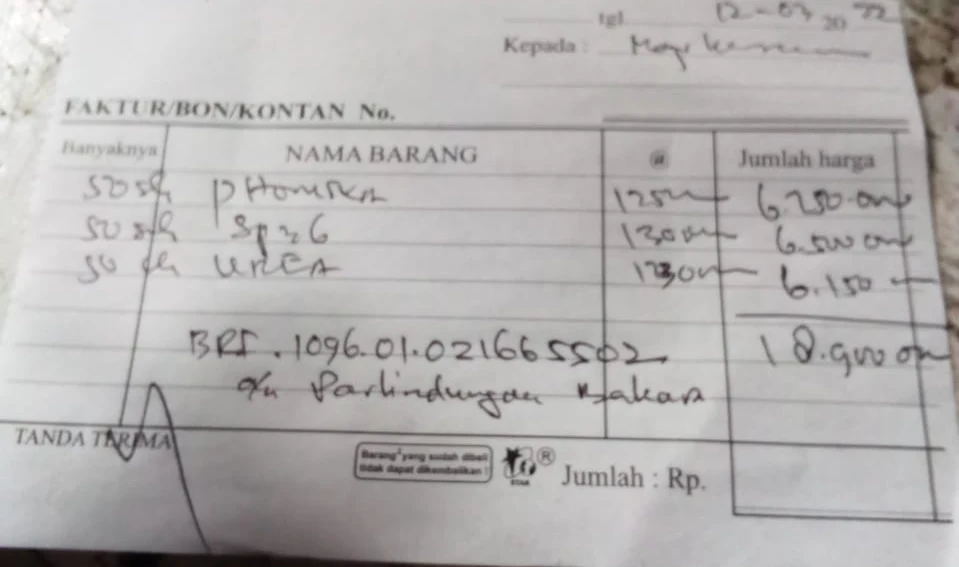 tgl 12-03 2022
Kepada :
FAKTUR/BON/KONTAN No.
Banyaknya NAMA BARANG @ Jumlah harga
50 sh PHONSKA 125 6.250.00
50 sh Sp 26 130 00 6.500 00
50 sh UREA 123 0 6.150
BRI. 1096.01.021665502 18.900 00
a/n Parlindungan
TANDA TERIMA
Barang yang sudah dibeli
tidak dapat dikembalikan !
® Jumlah : Rp.